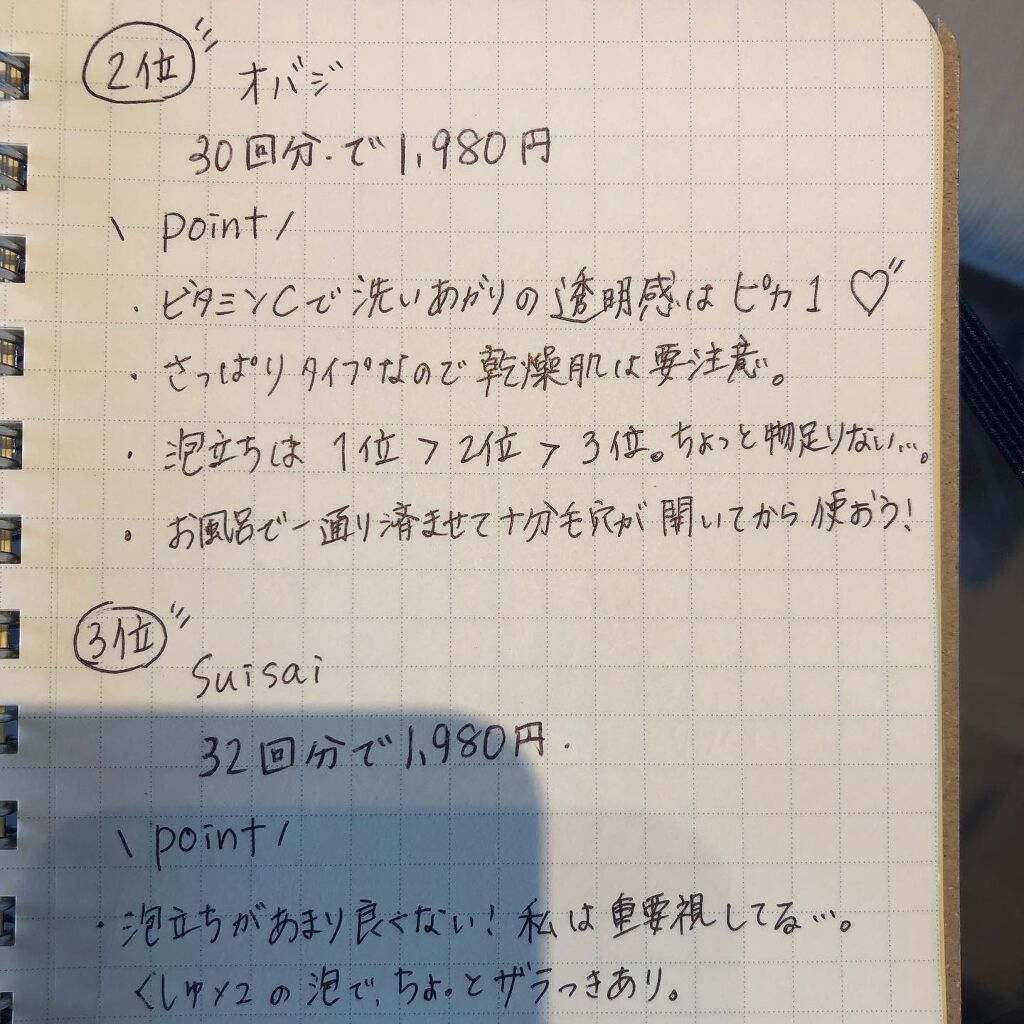 2位
オバジ
30回分.で1,980円
\ point /
・ビタミンCで洗いあがりの透明感はピカ1♡
・さっぱりタイプなので乾燥肌は要注意。
・泡立ちは 1位 > 2位 > 3位。ちょっと物足りない…。
・お風呂で一通り済ませて十分毛穴が開いてから使おう!
3位
Suisai
32回分で1,980円.
\ point /
・泡立ちがあまり良くない!私は重要視してる…。
くしゅ×2の泡で、ちょっとザラつきあり。